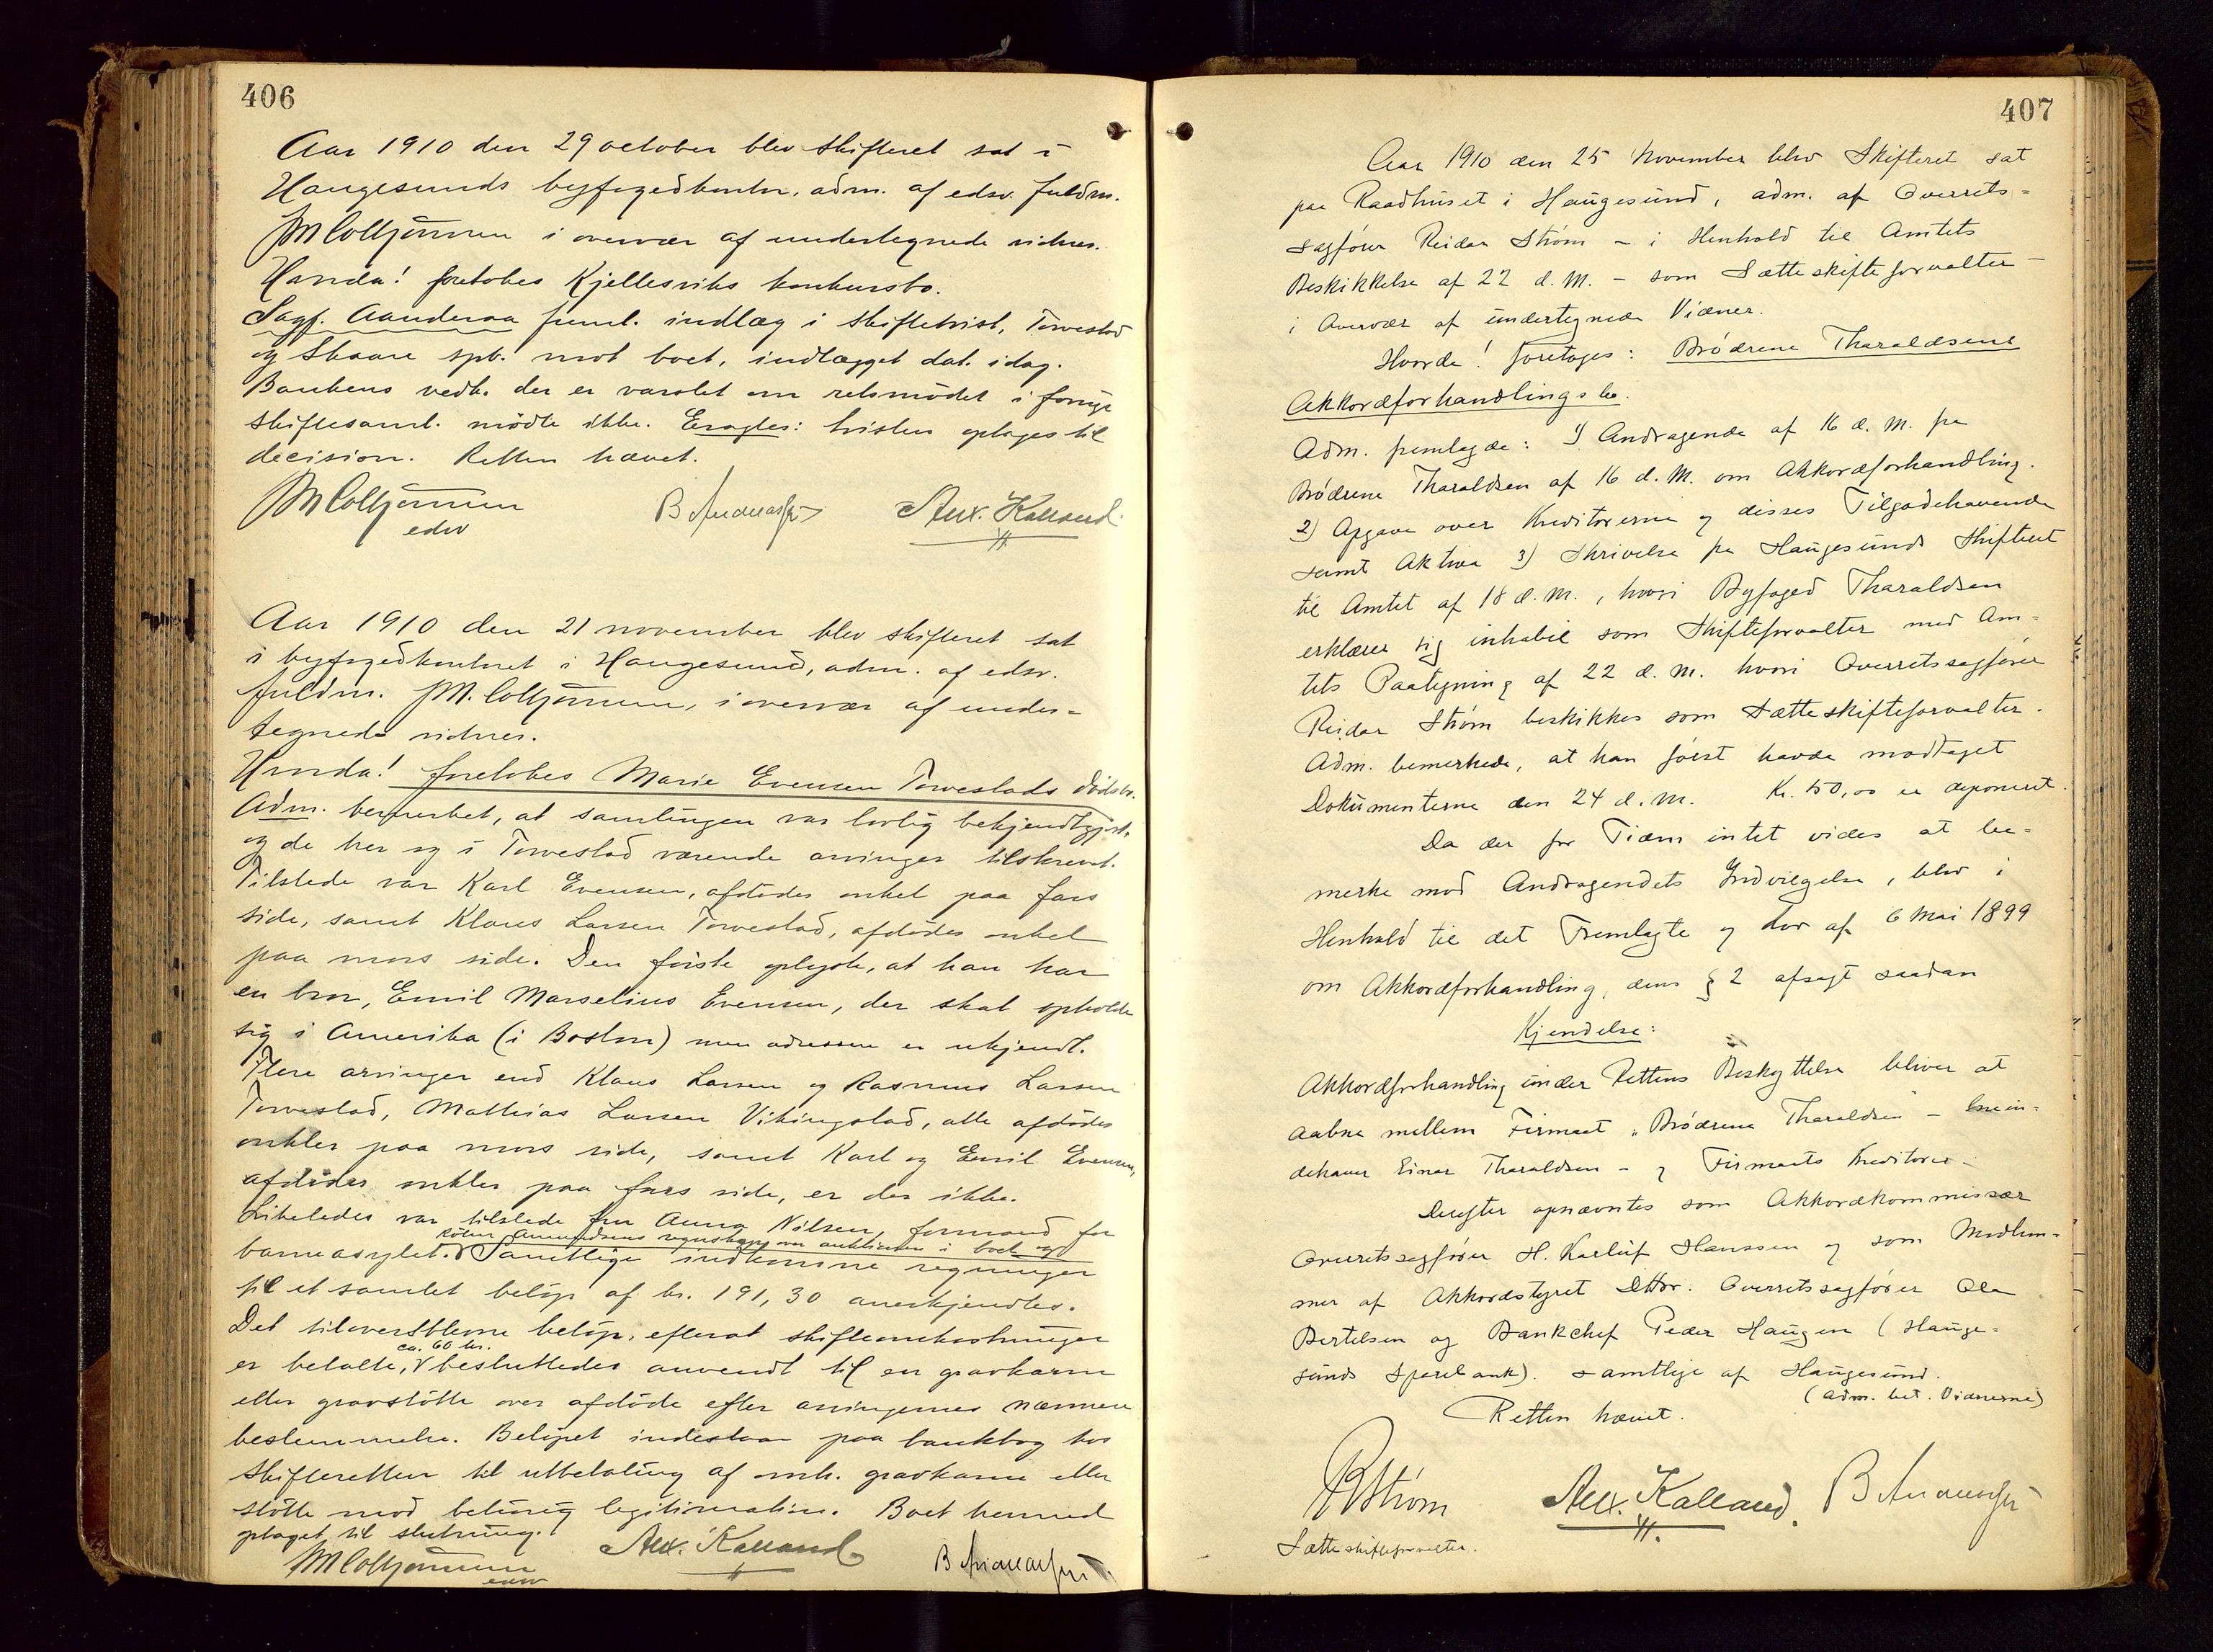 406
Aar 1910 den 29 october blev skifteret sat i
Haugesunds byfogedkontor, adm. af edsv. fuldm.
i overvær af undertegnede vidner.
Hvorda! foretokes Kjellesviks konkursbo.
Sagf. Aanderaa freml. indlæg i skiftetvist, Torvestad
og Skaare spb. mot boet, indlægget dat. idag.
Bankens vedk. der er varslet om retsmødet i forrige
skiftesaml. mødte ikke. Eragtes: tvisten optages til
decision. Retten hævet.
edsv
B Anduasfr Alex. Kalland
Aar 1910 den 21 november blev skifteret sat
i byfogedkontoret i Haugesund, adm. af edsv.
fuldm. i overvær af under=
tegnede vidner.
Hvorda! foretokes Marie Evensen Torvestads dødsbo.
Adm. bemerket, at samlingen var lovlig bekjendtgjort,
og de her og i Torvestad værende arvinger tilskrevet.
Tilstede var Karl Evensen, afdødes onkel paa fars
side, samt Klaus Larsen Torvestad, afdødes onkel
paa mors side. Den første oplyste, at han har
en bror, Emil Marselius Evensen, der skal opholde
sig i Amerika (i Boston) men adressen er ukjendt.
Flere arvinger end Klaus Larsen og Rasmus Larsen
Torvestad, Mathias Larsen Vikingstad, alle afdødes
onkler paa mors side, samt Karl og Emil Evensen,
afdødes onkler paa fars side, er der ikke.
Likeledes var tilstede fru Anna Nilsen, formand for
Amundsens regnskap over auktionen i boet og
barneasylet. Samtlige indkomne regninger
til et samlet beløp af kr. 191,30 anerkjendtes.
Det tiloversblevne beløp, efterat skifteomkostninger
ca. 60 kr.
er betalte, besluttedes anvendt til en gravkarm
eller gravstøtte over afdøde efter arvingernes nærmere
bestemmelse. Beløpet indestaar paa bankbog hos
skifteretten til utbetaling af omh. gravkarm eller
støtte mod behørig legitimation. Boet hermed
optaget til slutning.
Alex. Kalland
407
Aar 1910 den 25 November blev Skifteret sat
paa Raadhuset i Haugesund, adm. af Overrets=
sagfører Reidar Strøm - i Henhold til Amtets
Beskikkelse af 22 d. M. - som Sætteskifteforvalter -
i Overvær af undertegnede Vidner.
Hvorda! foretoges: Brødrene Tharaldsens
Akkordforhandlingsbo.
Adm. fremlagde: 1) Andragende af 16 d. M. fra
Brødrene Tharaldsen af 16 d. M. om Akkordforhandling.
2) Opgave over Kreditorerne og disses Tilgodehavende
samt Aktiva 3) Skrivelse fra Haugesunds Skifteret
til Amtet af 18 d. M., hvori Byfoged Tharaldsen
erklærer sig inhabil som Skifteforvalter med Am=
tets Paategning af 22 d. M. hvori Overretssagfører
Reidar Strøm beskikkes som Sætteskifteforvalter.
Adm. bemerkede, at han først havde modtaget
Dokumenterne den 24 d. M. Kr. 150,00 er deponeret.
Da der for Tiden intet vides at be=
merke mod Andragendets Indvilgelse, blev i
Henhold til det Fremlagte og Lov af 6 Mai 1899
om Akkordforhandling, dens § 2 afsagt saadan
Kjendelse:
Akkordforhandling under Rettens Beskyttelse bliver at
aabne mellem Firmaet "Brødrene Tharaldsen" - Enein=
dehaver Einar Tharaldsen - og Firmaets Kreditorer.
Derefter opnævntes som Akkordkommissær
Overretssagfører H. Karluf Hanssen og som Medlem=
mer af Akkordstyret Dhrr. Overretssagfører Ola
Bertelsen og Bankchef Peder Haugen (Hauge=
sunds Sparebank). samtlige af Haugesund.
(Adm. bet. Vidnerne)
Retten hævet.
RStrøm Alex. Kalland.
Sætteskifteforvalter.